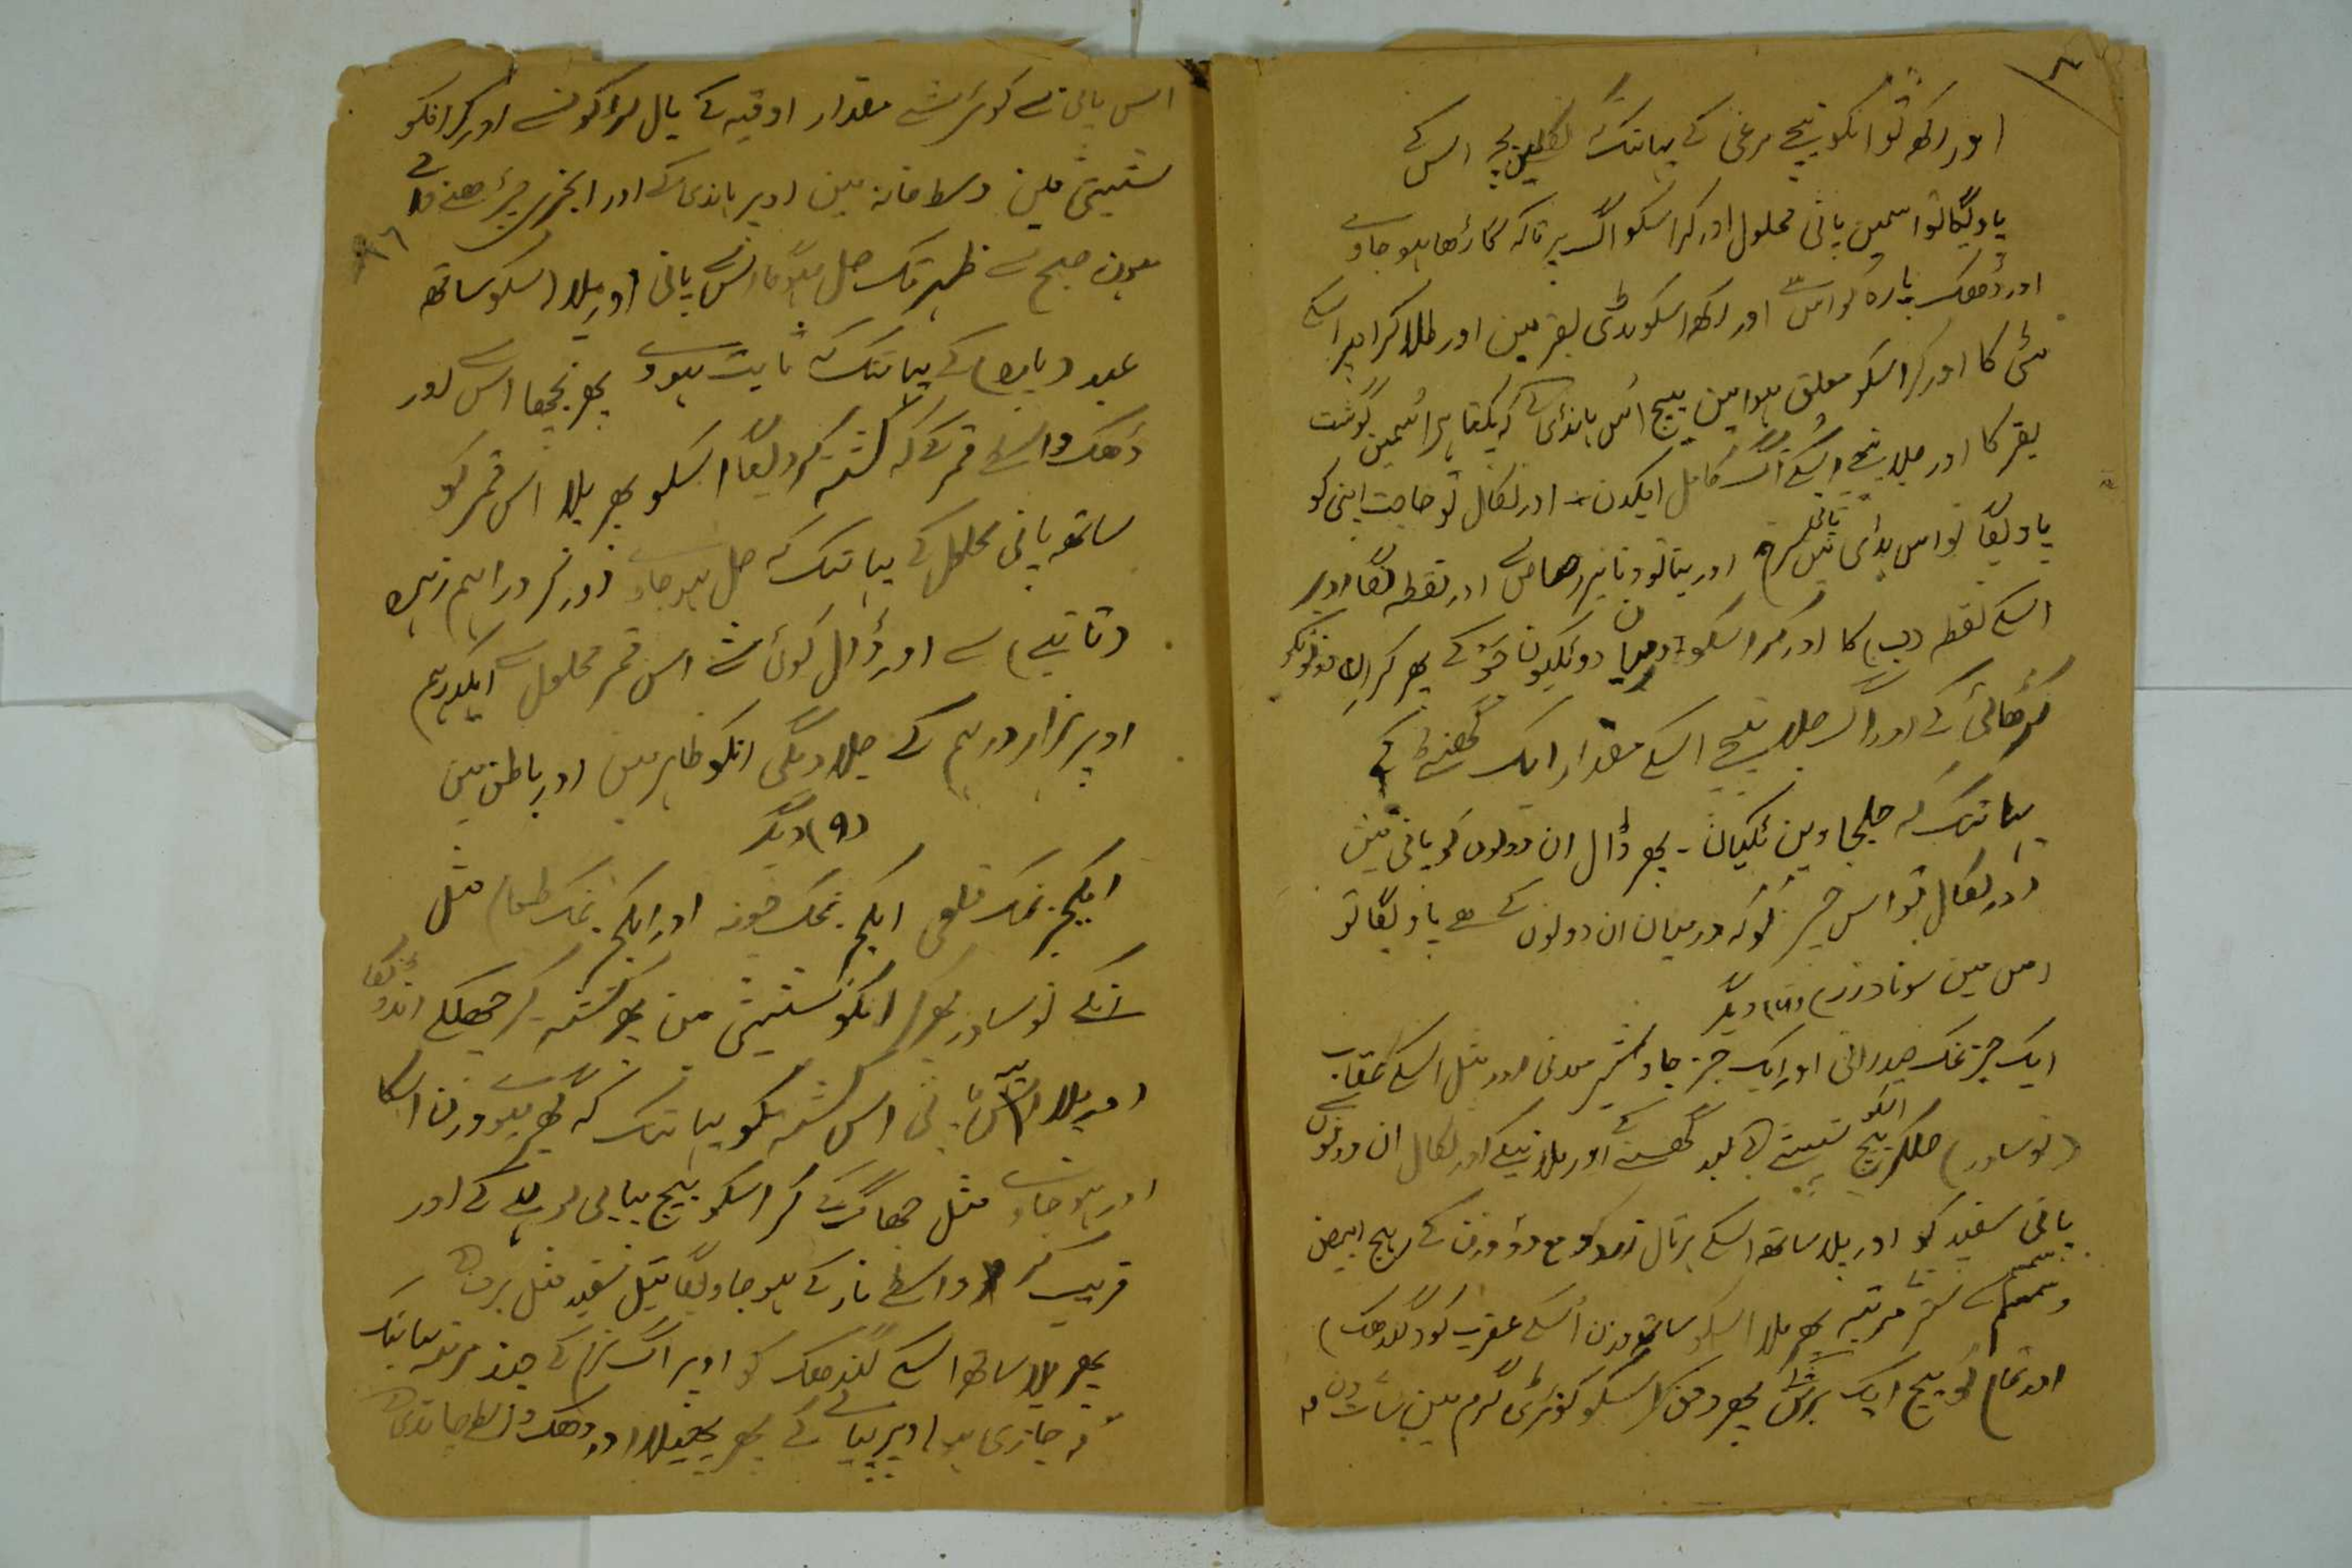 اور رکھ تو انکو نیچے مرغی کے یہانتک کہ نکلیں بچے اس کے
پاویگا تو اسمین پانی محلول اور کر اسکو آگ پر تاکہ گاڑھا ہو جاوے
اور ڈھک پارہ کو اس سے اور رکھ اسکو ہڈی بقر مین اور طلا کر اوپر اسکے
مٹی کا اور کر اسکو معلق ہوا مین بیچ اُس ہانڈی کے کہ پکتا ہے اُسمین گوشت
بقر کا اور جلا نیچے اسکے آگ کامل ایکدن اور نکال تو حاجت اپنی کو
پاویگا تو اس ہڈی میں اور بنا تو دنانیر رصاص سے اور نقطہ لگا اوپر
اسکے نقطہ (ب) کا اور کر اسکو درمیان دو ٹکیون کے پھر کر ان دونونکو
کڑھائی کے اور آگ جلا نیچے اسکے مقدار ایک گھنٹے کے
یہانتک کہ جلجاوین ٹکیان - پھر ڈال ان دونوں کو پانی مین
اور نکال تو اس چیز کو کہ درمیان ان دونوں کے ہے پاویگا تو
اس مین سونا (زر) دیگر
ایک جز نمک حیدرانی اور ایک جز جاوشیر معدنی اور مثل اسکے عقاب
(نوشادر) ملاکر بیچ انکو شیشے کے بعد گھسنے کے اور ملانیکے اور نکال ان دونوں سے
پانی سفید کو اور پلا ساتھ اسکے ہرتال زرد کو مع دو وزن کے زیبق ابیض
ستر مرتبہ پھر ملا اسکو ساتھ وزن اُسکے عقرب کو (گندھک)
اور تمام کو بیچ ایک برتن پھر دفن کر اسکو کوٹھڑی گرم مین سات دن
اس پانی سے کوئی شے مقدار اوقیہ کے بال کو اور کر انکو
شیشی مین وسط خانہ مین اوپر ہانڈی کے اور
ہون صبح سے ظہر تک حل ہوگا اس پانی اور ملا اسکو ساتھ
عبد (پارہ) کے یہانتک کہ ثابت ہووے پھر بجھا اس سے اور
ڈھک واسطے قمر کے کہ کشتہ کردیگا اسکو پھر پلا اس قمر کو
ساتھ پانی محلول کے یہانتک کہ حل ہو جاوے اور کر دراہم زہرہ
(تانبے) سے اور ڈال کوئی شے اس قمر محلول سے ایکدرہم
اوپر ہزار درہم کے جلا دیگی انکو ظاہر مین اور باطن مین
(۹) دیگر
ایکجز نمک قلعی ایکجز نمک اور ایکجز نمک طعام مثل
انکے نوشادر پھر کر انکو شیشی مین پھر کشتہ کر چھلکے انڈونکا
اور پلا پانی اس کشتہ کو یہانتک کہ ہو وزن اسکا
اور ہو جاوے مثل جھاگ کے کر اسکو بیچ پیالی لوہے کے اور
قریب کر واسطے نار کے ہو جاویگا تیل سفید مثل برف
پھر ملا ساتھ اسکے گندھک کو اوپر آگ نرم کے چند مرتبہ یہانتک
کہ جاری ہو اوپر کے پھر پگھلا اور ڈھک واسطے چاندی